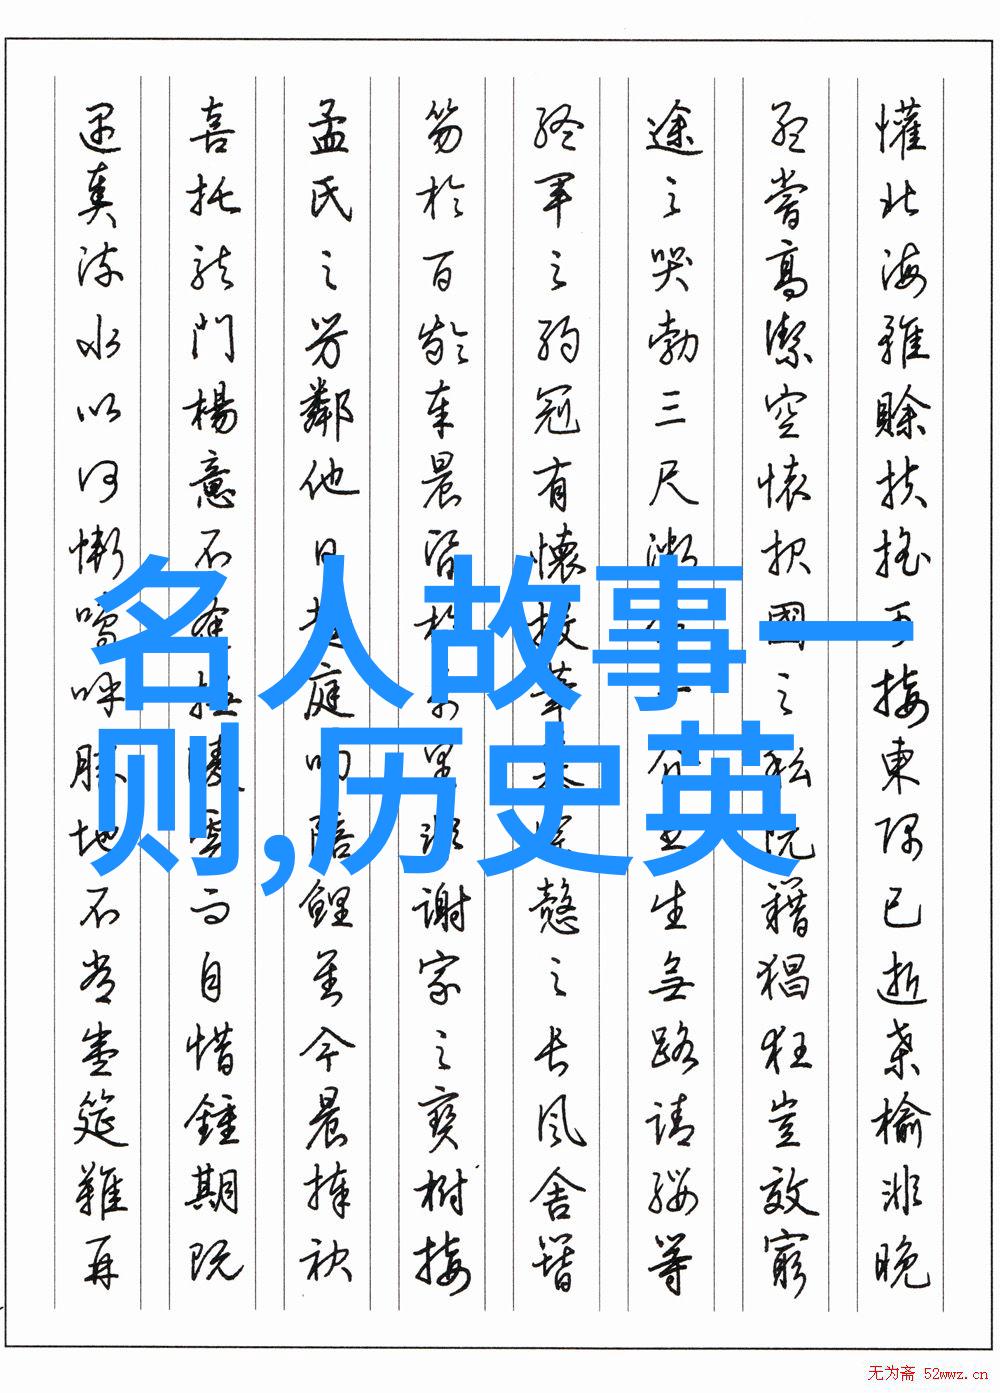 懽北海雖賒扶搖可接東隅已逝桑榆非晚
孟嘗高潔空懷报國之私阮籍猖狂豈效窮
途之哭勃三尺微命一介書生無路請纓等
終軍之弱冠有懷投筆慕宗愨之長風舍簪
笏於百齡奉晨昏於萬里非謝家之寶樹接
孟氏之芳鄰他日趨庭叨陪鯉對今晨捧袂
喜托龍門楊意不逢撫凌雲而自惜鍾期既
遇奏流水以何慚嗚呼勝地不常盛筵難再
名人故事一
则,历史英
无为斋 52wwz.cn